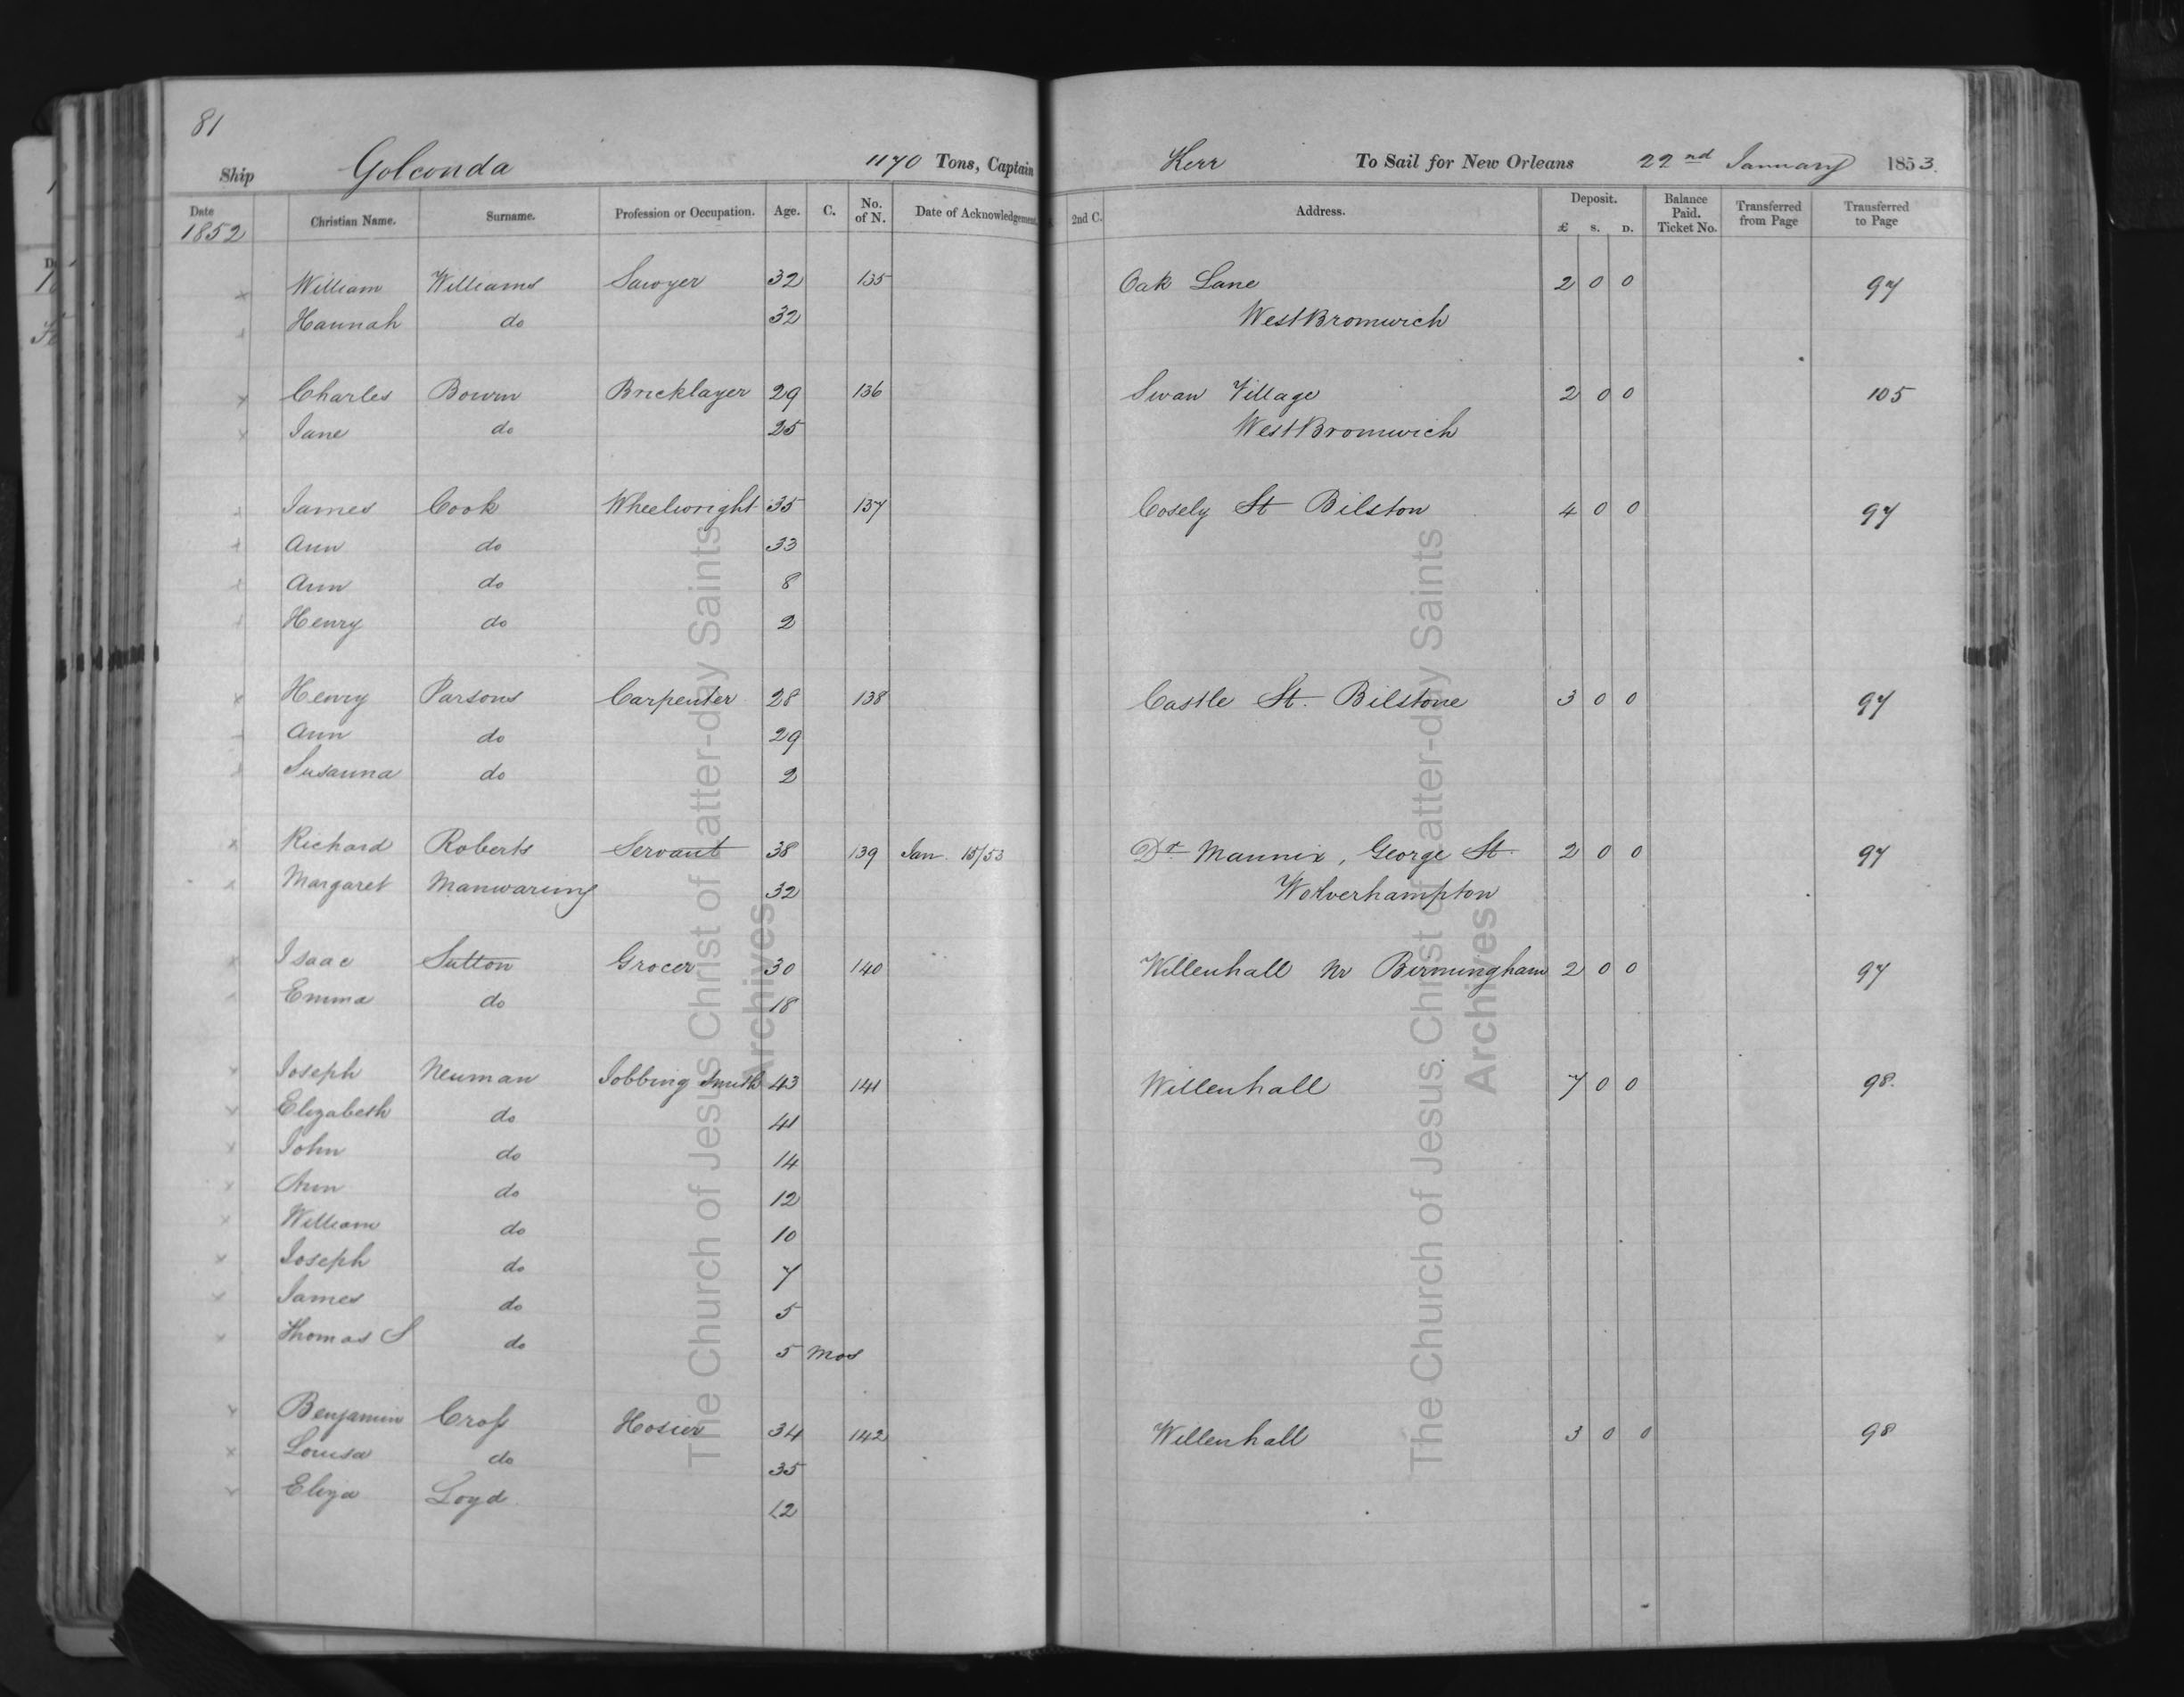 81
Ship Golconda 1170 Tons, Captain Kerr To Sail for New Orleans 22nd January 1853.
Date 1852 Christian Name. Surname. Profession or Occupation. Age. C. No. of N. Date of Acknowledgement. 2nd C. Address. Deposit. £ s. D. Balance Paid. Ticket No. Transferred from Page Transferred to Page
x William Williams Sawyer 32 135 Oak Lane 2 0 0 97
x Hannah do 32 West Bromwich
x Charles Bowin Bricklayer 29 136 Swan Village 2 0 0 105
x Jane do 25 West Bromwich
x James Cook Wheelwright 35 137 Cosely St Bilston 4 0 0 97
x Ann do 33
x Ann do 8
x Henry do 2
x Henry Parsons Carpenter 28 138 Castle St. Bilstone 3 0 0 97
x Ann do 29
x Susanna do 2
x Richard Roberts Servant 38 139 Jan. 15/53 Dr Mannix, George St. 2 0 0 97
x Margaret Manwaring 32 Wolverhampton
x Isaac Sutton Grocer 30 140 Willenhall Nr Birmingham 2 0 0 97
x Emma do 18
x Joseph Neuman Jobbing Smith 43 141 Willenhall 7 0 0 98.
x Elizabeth do 41
x John do 14
x Ann do 12
x William do 10
x Joseph do 7
x James do 5
x Thomas S do 5 Mos
x Benjamin Cross Hosier 34 142 Willenhall 3 0 0 98
x Louisa do 35
x Eliza Loyd 12
The Church of Jesus Christ of Latter-day Saints
Archives
The Church of Jesus Christ of Latter-day Saints
Archives